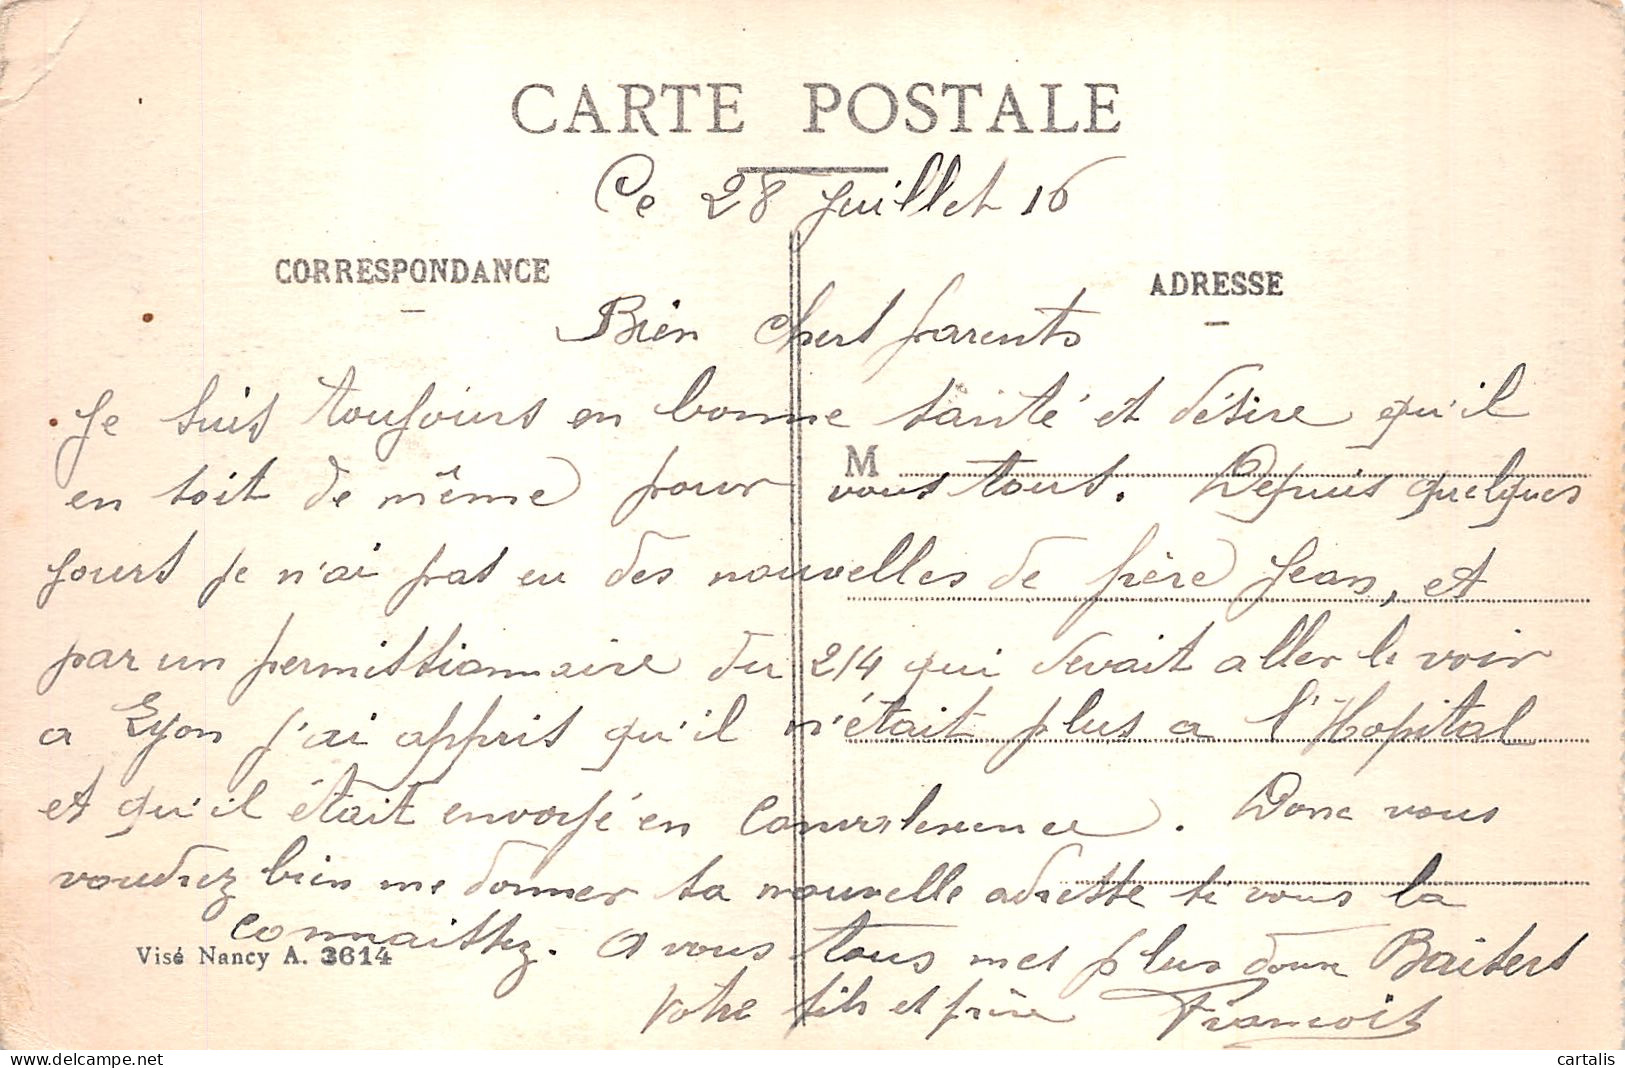 CARTE POSTALE
Ce 28 Juillet 16
CORRESPONDANCE
ADRESSE
Bien chers parents
Je suis toujours en bonne santé et désire qu'il
M
en soit de même pour vous tous. Depuis quelques
jours je n'ai pas eu des nouvelles de frère Jean, et
par un permissionnaire du 214 qui devait aller le voir
a Lyon j'ai appris qu'il n'était plus a l'Hopital
et qu'il était envoyé en convalescence. Donc vous
voudrez bien me donner sa nouvelle adresse si vous la
connaissez. A vous tous mes plus doux Baisers
Visé Nancy A. 3614
Votre fils et frère François
cartalis